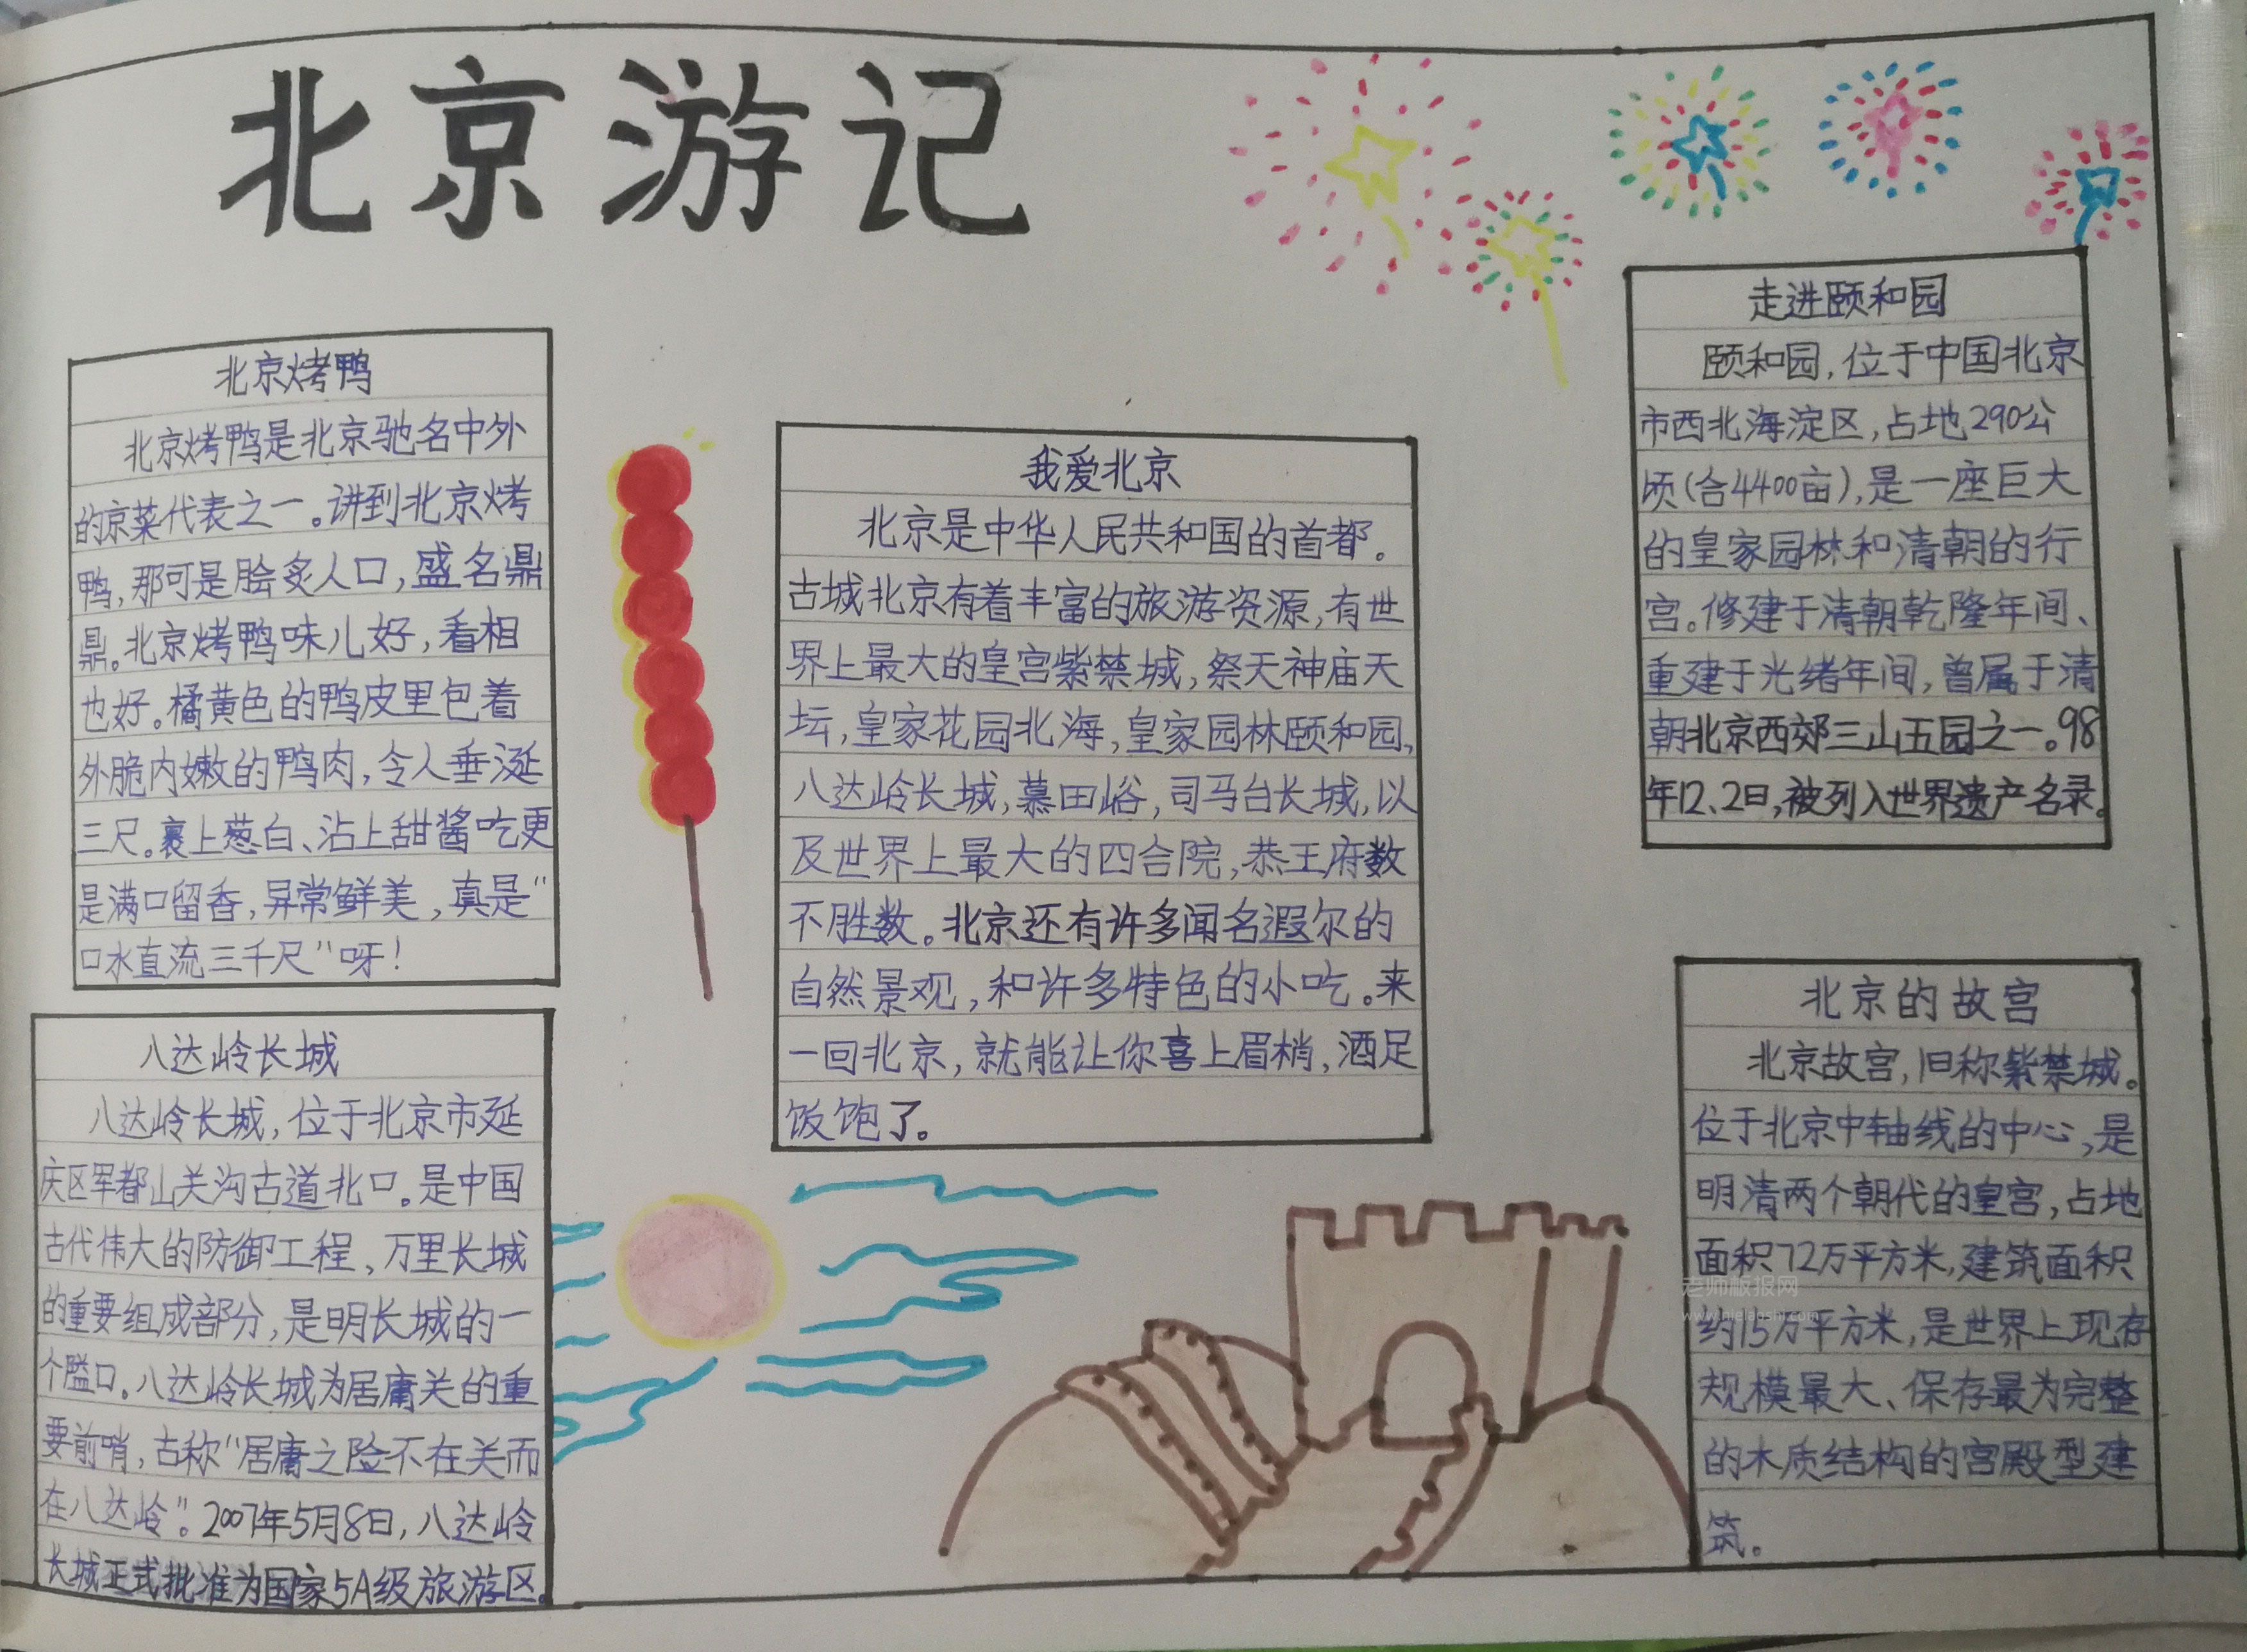 北京游记
北京烤鸭
北京烤鸭是北京驰名中外
的京菜代表之一。讲到北京烤
鸭,那可是脍炙人口,盛名鼎
鼎。北京烤鸭味儿好,看相
也好。橘黄色的鸭皮里包着
外脆内嫩的鸭肉,令人垂涎
三尺。裹上葱白、沾上甜酱吃更
是满口留香,异常鲜美,真是“
口水直流三千尺”呀!
八达岭长城
八达岭长城,位于北京市延
庆区军都山关沟古道北口。是中国
古代伟大的防御工程,万里长城
的重要组成部分,是明长城的一
个隘口。八达岭长城为居庸关的重
要前哨,古称“居庸之险不在关而
在八达岭”。2007年5月8日,八达岭
长城正式批准为国家5A级旅游区。
我爱北京
北京是中华人民共和国的首都。
古城北京有着丰富的旅游资源,有世
界上最大的皇宫紫禁城,祭天神庙天
坛,皇家花园北海,皇家园林颐和园,
八达岭长城,慕田峪,司马台长城,以
及世界上最大的四合院,恭王府数
不胜数。北京还有许多闻名遐尔的
自然景观,和许多特色的小吃。来
一回北京,就能让你喜上眉梢,酒足
饭饱了。
走进颐和园
颐和园,位于中国北京
市西北海淀区,占地290公
顷(合4400亩),是一座巨大
的皇家园林和清朝的行
宫。修建于清朝乾隆年间、
重建于光绪年间,曾属于清
朝北京西郊三山五园之一。98
年12、2日,被列入世界遗产名录。
北京的故宫
北京故宫,旧称紫禁城。
位于北京中轴线的中心,是
明清两个朝代的皇宫,占地
面积72万平方米,建筑面积
老师板报网
约15万平方米,是世界上现存
规模最大、保存最为完整
的木质结构的宫殿型建
筑。